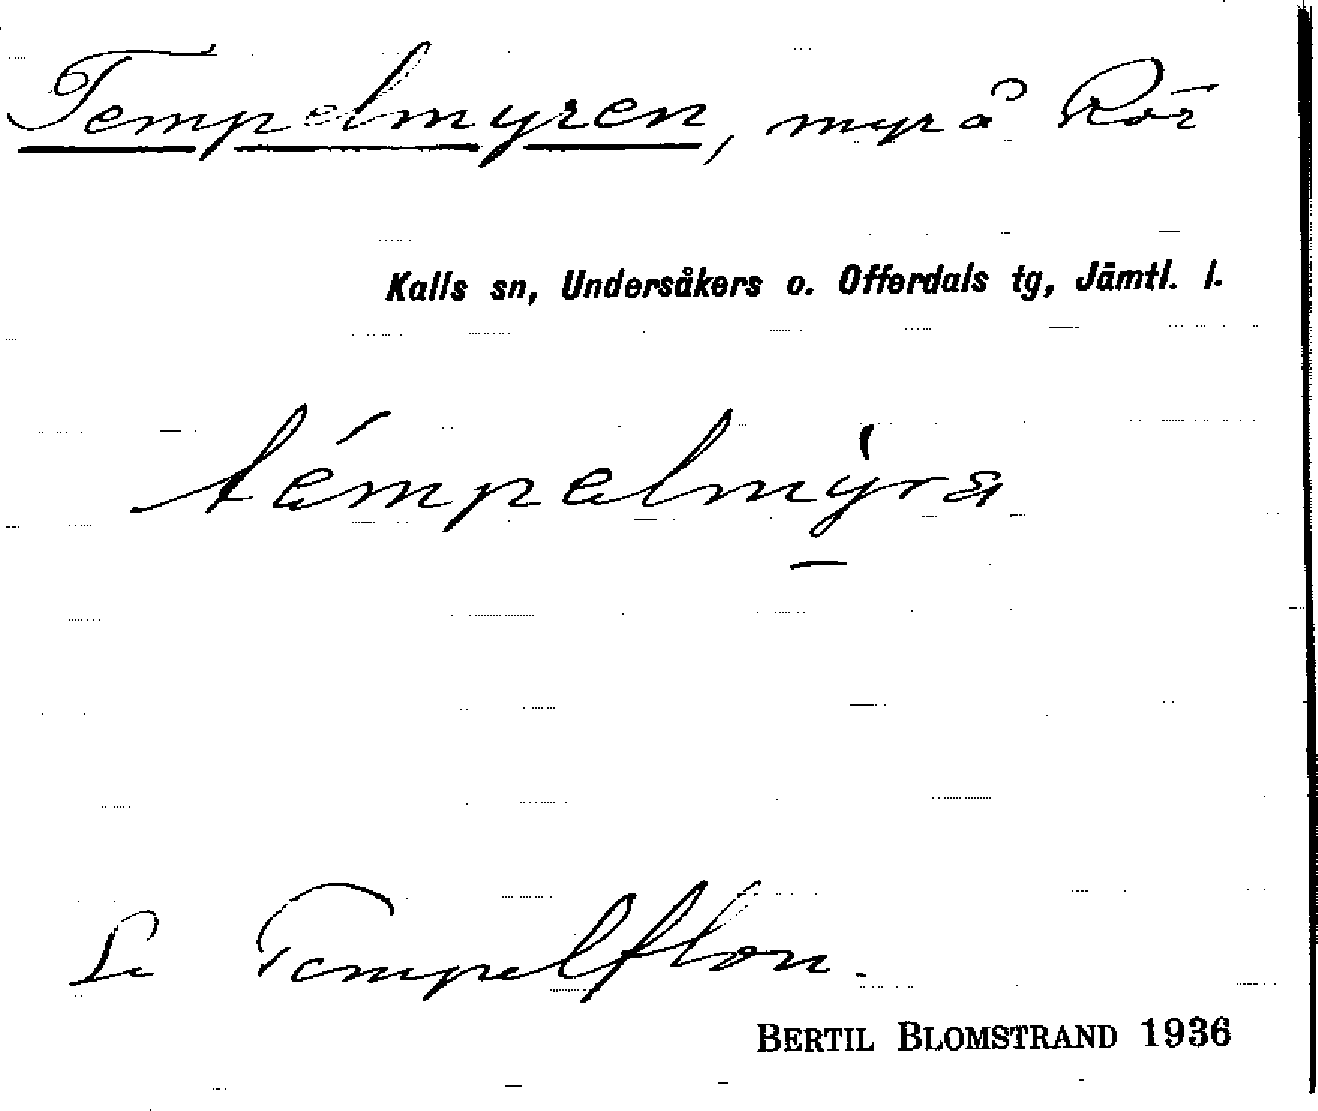 Tempelmyren, myr å Rör
Kalls sn, Undersåkers o. Offerdals tg, Jämtl. l.
témpalmỳra
Se Tempelflon.
BERTIL BLOMSTRAND 1936